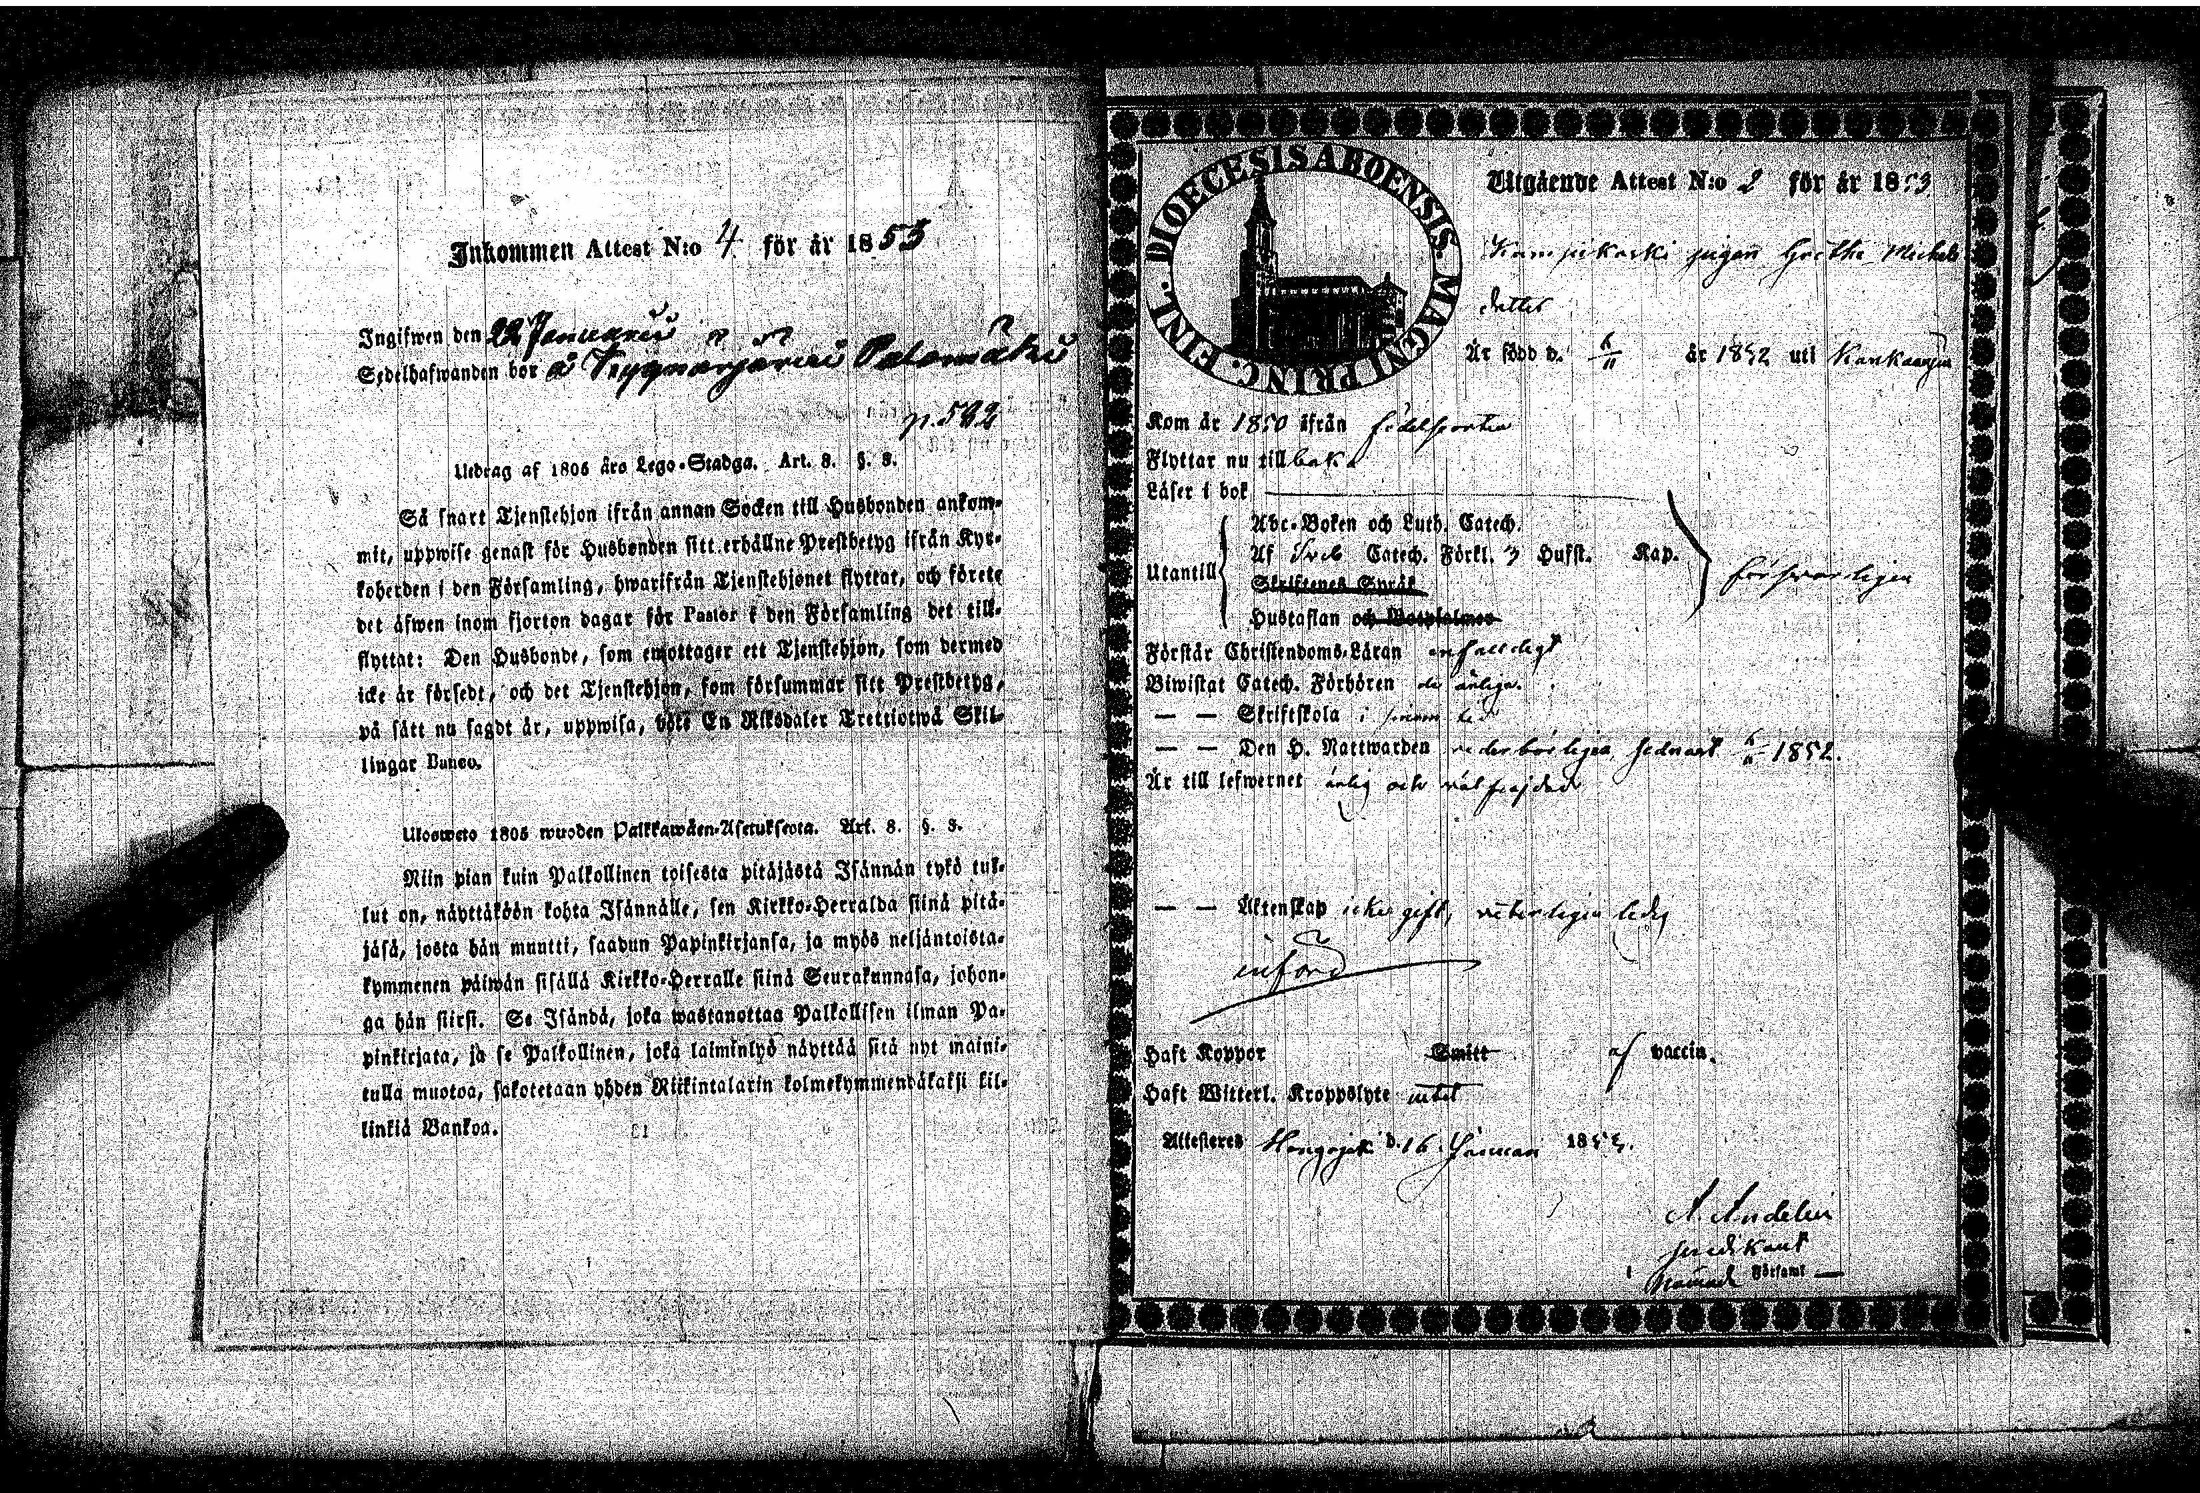 Inkommen Attest N:o 4 för år 1853
Ingifwen den 22 Januarii
Sedelhafwanden bor å Palomäki
p. 582
Utdrag af 1805 års Lego-Stadga. Art. 8. §. 8.
Så snart Tjenstehjon ifrån annan Socken till Husbonden ankom-
mit, uppwise genast för Husbonden sitt erhållne Prestbetyg ifrån Kyr-
koherden i den Församling, hwarifrån Tjenstehjonet flyttat, och förete
det äfwen inom fjorton dagar för Pastor i den Församling det till-
flyttat: Den Husbonde, som emottager ett Tjenstehjon, som dermed
icke är försedt, och det Tjenstehjon, som försummar sitt Prestbetyg,
på sätt nu sagdt är, uppwisa, böte En Riksdaler Trettiotwå Skil-
lingar Banco.
Ulosweto 1805 wuoden Palkkawäen-Asetuksesta. Art. 8. §. 8.
Niin pian kuin Palkollinen toisesta pitäjästä Isännän tykö tul-
lut on, näyttäköön kohta Isännälle, sen Kirkko-Herralda siinä pitä-
jäsä, josta hän muutti, saadun Papinkirjansa, ja myös neljäntoista-
kymmenen päiwän sisällä Kirkko-Herralle siinä Seurakunnasa, johon-
ga hän siirsi. Se Isändä, joka wastanottaa Palkollisen ilman Pa-
pinkirjata, ja se Palkollinen, joka laiminlyö näyttää sitä nyt maini-
tulla muotoa, sakotetaan yhden Riikintalarin kolmekymmendäkaksi kil-
linkiä Bankoa.
DIOECESIS ABOENSIS. MAGNI PRINC. FINL.
Utgående Attest N:o 2 för år 1853
pigan Gretha Michels
dotter
Är född d. 6/11 år 1832 uti Kankaanpä
Kom år 1850 ifrån födelseorten
Flyttar nu tillbaka
Läser i bok
Abc-Boken och Luth. Catech.
Utantill Af Sveb Catech. Förkl. 3 Hufst. Kap. försvarligen
Skriftenes Språk
Hustaflan och Botpsalmer
Förstår Christendoms-Läran enfaldigt
Biwistat Catech. Förhören de årliga.
— — Skriftskola i
— — Den H. Nattwarden vederbörligen, sednast 6/11 1852.
Är till lefwernet ärlig och välfräjdad
— — Äktenskap icke gift, veterligen ledig
införd
Haft Koppor Smitt af vaccin.
Haft Witterl. Kroppslyte intet
Attesteras Hongojoki d. 16 Januari 1853.
A. Andelin
predikant
i nämnd Församl —